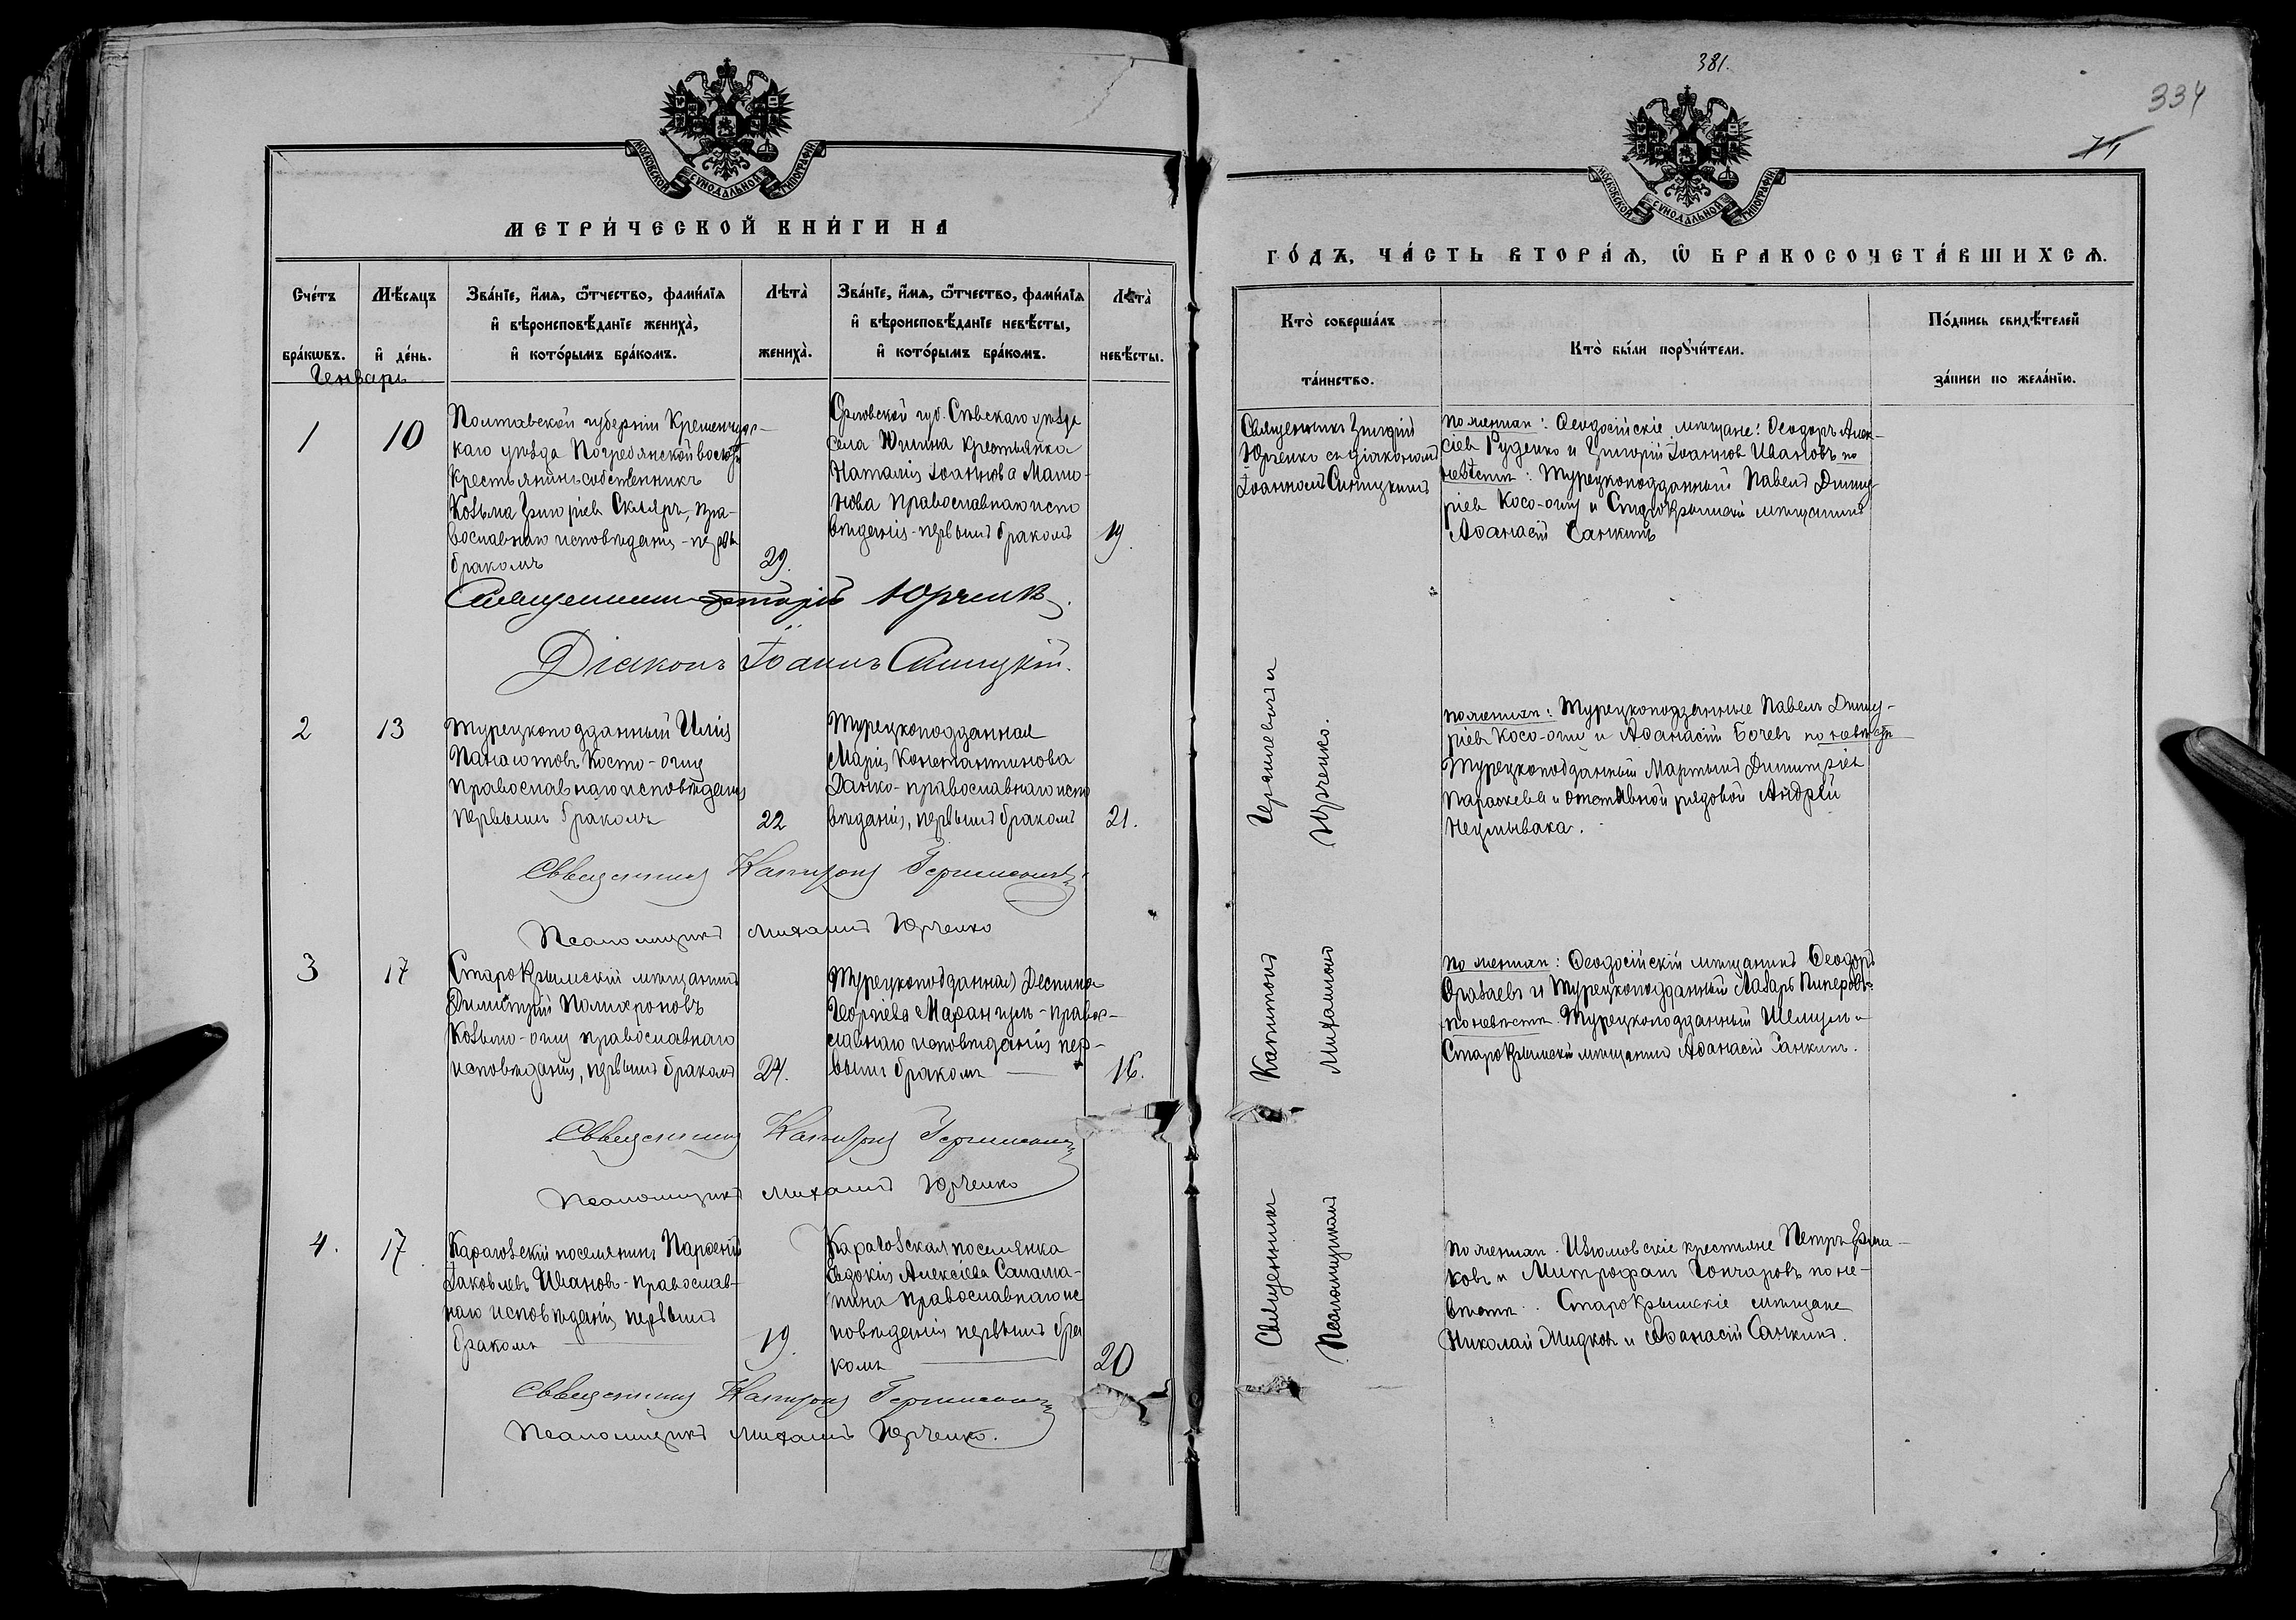 381.
334
МОСКОВСКОЙ СѴНОДАЛЬНОЙ ТИПОГРАФІИ
МЕТРИ́ЧЕСКОЙ КНИ́ГИ НА
Сче́тъ бра́кѡвъ.
Мѣ́сяцъ и҆ де́нь.
Зва́нїе, и҆́мѧ, ѻ҆́тчество, фами́лїѧ
и҆ вѣроисповѣ́данїе жениха̀,
и҆ кото́рымъ бра́комъ.
Лѣта̀ жениха̀.
Зва́нїе, и҆́мѧ, ѻ҆́тчество, фами́лїѧ
и҆ вѣроисповѣ́данїе невѣ́сты,
и҆ кото́рымъ бра́комъ.
Лѣта̀ невѣ́сты.
Генварь
1
10
Полтавской губерніи Кременчугс-
каго уѣзда Погребянской волости
крестьянинъ собственникъ
Козьма Григоріевъ Скляръ, пра-
вославнаго исповѣданія - первы
бракомъ
29.
Орловской губ. Сѣвскаго уѣзда
села Юшина крестьянка
Наталія Іоаннова Мато-
нова православнаго испо
вѣданія - первымъ бракомъ
19.
Священникъ Григорій Юрченко.
Діаконъ Іоаннъ Синицкій.
2
13
Турецкоподданный Илія
Панаіотовъ Косто-оглу
Православнаго исповѣданія
первымъ бракомъ
22
Турецкоподданная
Марія Константинова
Данко - православнаго испо
вѣданія, первымъ бракомъ
21.
Священникъ Капитонъ
Псаломщикъ Михаилъ Юрченко
3
17
Старокрымскій мѣщанинъ
Димитрій Полихроновъ
Козьмо-оглу православнаго
исповѣданія, первымъ бракомъ
24.
Турецкоподданная Деспина
Георгіева Марангуль - правос-
лавнаго исповѣданія пер-
вымъ бракомъ
16.
Священникъ Капитонъ
Псаломщикъ Михаилъ Юрченко
4.
17
Карагозскій поселянинъ Парѳеній
Іаковлевъ Ивановъ - православ-
наго исповѣданія первымъ
бракомъ
19.
Карагозская поселянка
Евдокія Алексіева Салама-
тина православнаго ис
повѣданія первымъ бра
комъ
20
Священникъ Капитонъ
Псаломщикъ Михаилъ Юрченко.
МОСКОВСКОЙ СѴНОДАЛЬНОЙ ТИПОГРАФІИ
ГО́ДЪ, ЧА́СТЬ ВТОРА́Ѧ, Ѡ҆ БРАКОСОЧЕТА́ВШИХСѦ.
Кто̀ соверша́лъ та́инство.
Кто̀ бы́ли порꙋчи́тели.
По́дпись свидѣ́телей за́писи по жела́нїю.
Священникъ Григорій
Юрченко съ діакономъ
Іоанномъ Синицкимъ
по женихѣ: Ѳеодосійскіе мѣщане: Ѳеодоръ Алек-
сіевъ Руденко и Григорій Іоанновъ Ивановъ по
невѣстѣ: Турецкоподданный Павелъ Димит
ріевъ Косо-оглу и Старокрымскій мѣщанинъ
Аѳанасій Санкинъ
по женихѣ: Турецкоподданные Павелъ Димит-
ріевъ Косо-оглу и Аѳанасій Бочевъ по невѣстѣ
Турецкоподданный Мартынъ Димитріевъ
Параскева и отставной рядовой Андрей
Неумывака.
по женихѣ: Ѳеодосійскій мѣщанинъ Ѳеодоръ
и Турецкоподданный Лазарь Пиперовъ:
по невѣстѣ. Турецкоподданный и
Старокрымскій мѣщанинъ Аѳанасій Санкинъ.
по женихѣ. Изюмовскіе крестьяне Петръ
ковъ и Митрофанъ Гончаровъ по не-
вѣстѣ. Старокрымскіе мѣщане
Николай Мидковъ и Аѳанасій Санкинъ.
Священникъ Капитонъ
Псаломщикъ Михаиломъ Юрченко.